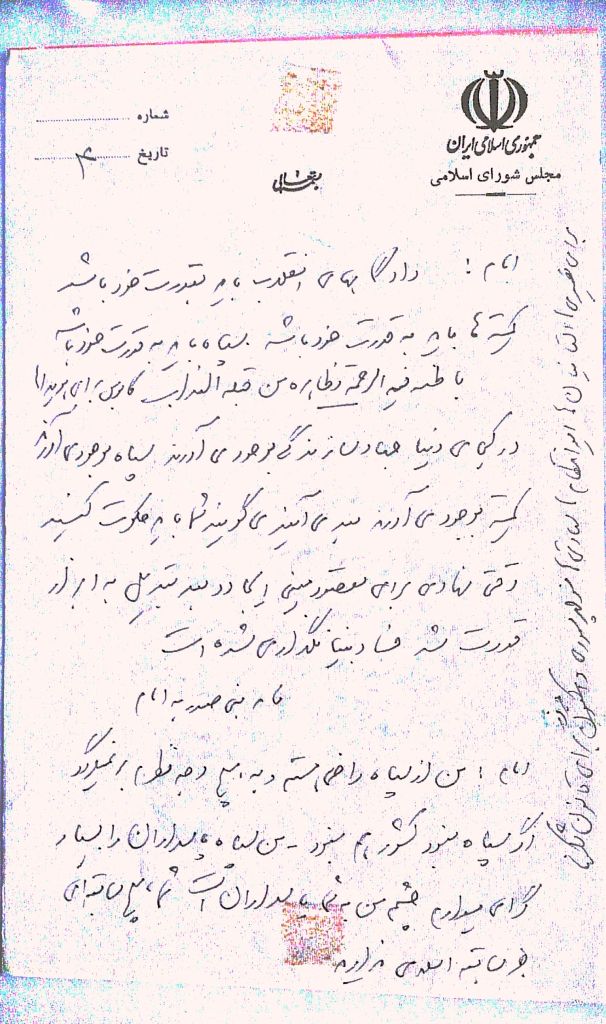 جمهوری اسلامی ایران
مجلس شورای اسلامی
بسمه تعالی
شماره
تاریخ ۴
امام : دادگاههای انقلاب باید بقدرت خود باشد
کمیته ها باید به قدرت خود باشد سپاه باید به قدرت خود باشد
باطنه فیه الرحمة و ظاهره من قبله العذاب
در کجای دنیا جهاد سازندگی بوجود می آورند سپاه بوجود می آورند
کمیته بوجود می آورند بعد می آیند می گویند شما باید حکومت کنید
وقتی نهادی برای مقصود معینی ایجاد و بعد تبدیل به ابزار
قدرت شد فساد بنیانگذاری شده است
نامه بنی صدر به امام
امام : من از سپاه راضی هستم و به هیچ وجه نظرم برنمیگردد
اگر سپاه نبود کشور هم نبود - من سپاه پاسداران را بسیار
گرامی میدارم چشم من به شما پاسداران است شما هیچ سابقه ای
جز سابقه اسلامی ندارید
برای